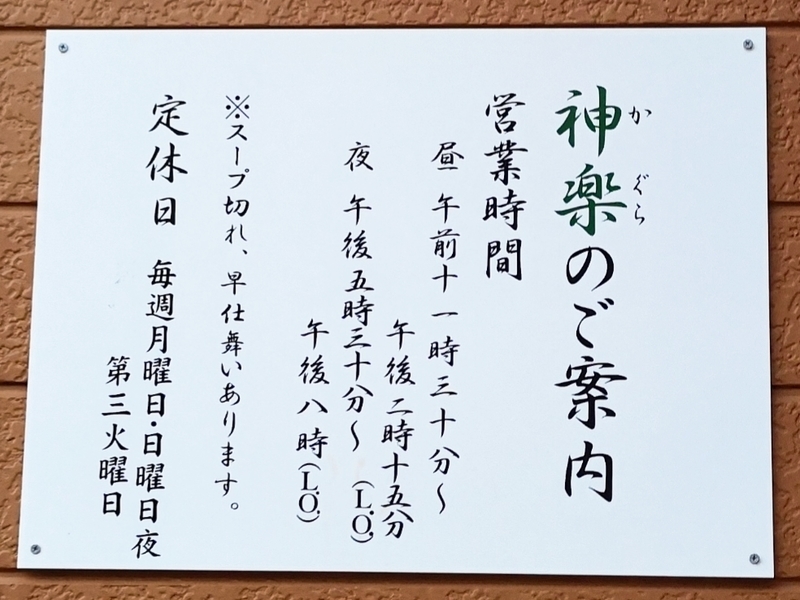 神楽のご案内
かぐら
営業時間
昼 午前十一時三十分～
午後二時十五分(L.O.)
夜 午後五時三十分～
午後八時(L.O.)
※スープ切れ、早仕舞いあります。
定休日 毎週月曜日・日曜日夜
第三火曜日